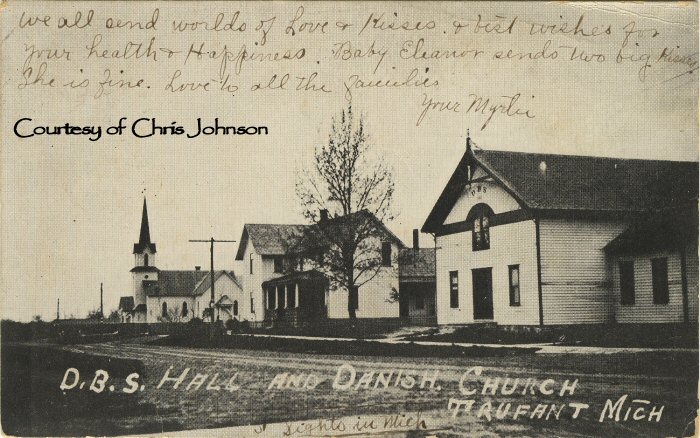 we all send worlds of Love & Kisses. & best wishes for
your health & Happiness. Baby Eleanor sends two big Kisses
She is fine. Love to all the families
Your Myrtle
Courtesy of Chris Johnson
D.B.S.
D.B.S. HALL AND DANISH. CHURCH
TRUFANT MICH
Sights in Mich